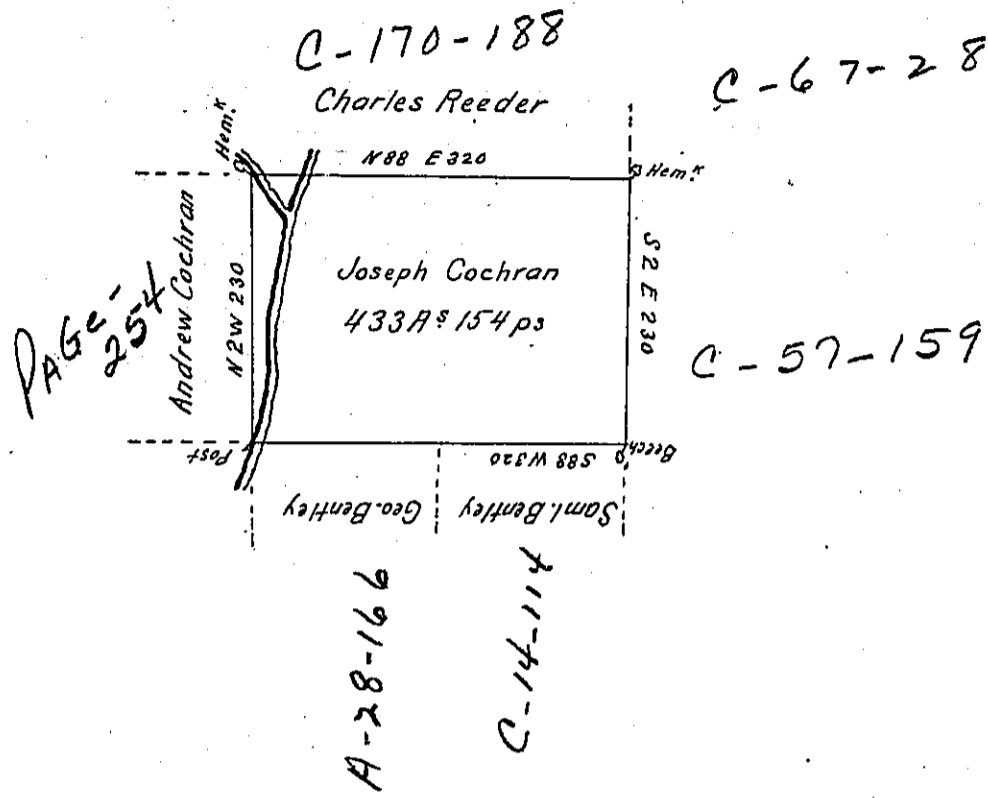 C-170-188
C-67-28
Charles Reeder
Hem.k
N88 E 320
Hem.k
PAGE-
254
Andrew Cochran
N2W 230
Joseph Cochran
433As 154 ps
S2 E 230
C-57-159
Post
S88 W320
Beech
Geo. Bentley
Saml. Bentley
A-28-166
C-14-114